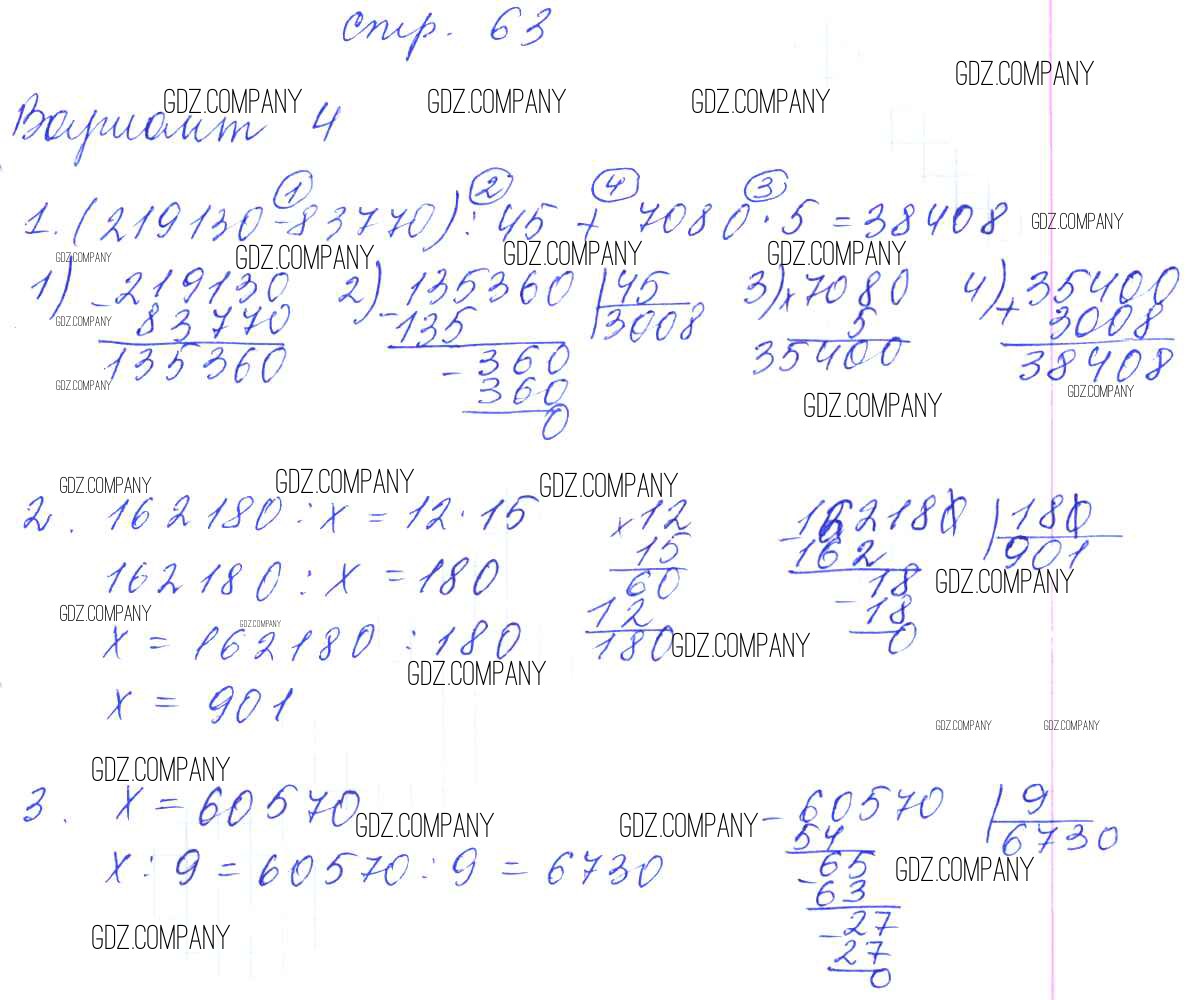 стр. 63
GDZ.COMPANY GDZ.COMPANY GDZ.COMPANY GDZ.COMPANY
Вариант 4
1 2 4 3
1. (219130 - 83770) : 45 + 7080 · 5 = 38408 GDZ.COMPANY
GDZ.COMPANY GDZ.COMPANY GDZ.COMPANY GDZ.COMPANY
1) - 219130 2) - 135360 | 45 3) x 7080 4) + 35400
GDZ.COMPANY 83770 135 3008 5 3008
135360 - 360 35400 38408
GDZ.COMPANY 360 GDZ.COMPANY GDZ.COMPANY
0
GDZ.COMPANY GDZ.COMPANY GDZ.COMPANY
2. 162180 : x = 12 · 15 x 12 - 162180 | 180
15 162 901
162180 : x = 180 60 - 18 GDZ.COMPANY
GDZ.COMPANY GDZ.COMPANY 12 18
x = 162180 : 180 180 GDZ.COMPANY 0
GDZ.COMPANY
x = 901
GDZ.COMPANY GDZ.COMPANY
GDZ.COMPANY
3. x = 60570 GDZ.COMPANY GDZ.COMPANY - 60570 | 9
54 6730
x : 9 = 60570 : 9 = 6730 - 65 GDZ.COMPANY
63
- 27
GDZ.COMPANY 27
0